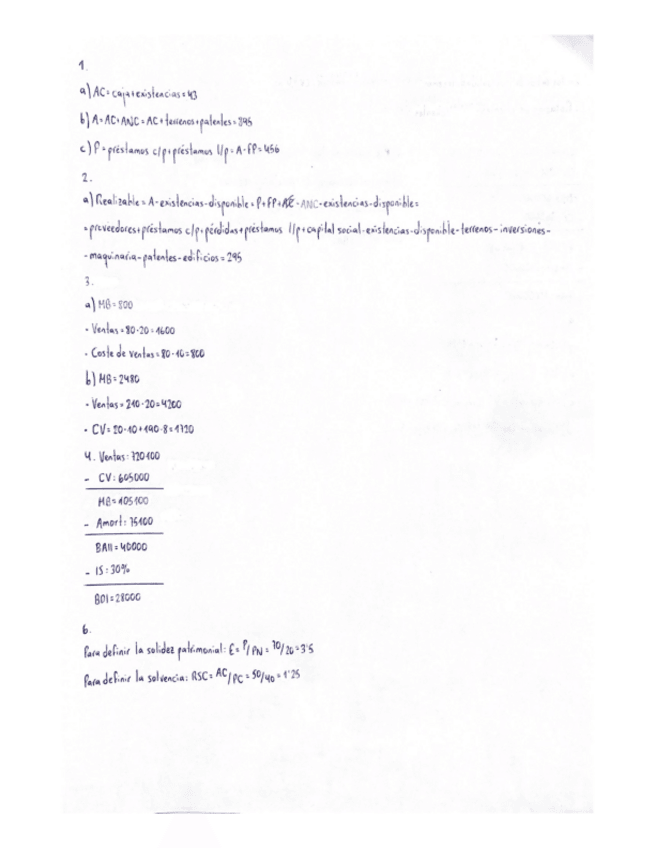 1.
a) AC = caja + existencias = 43
b) A = AC + ANC = AC + terrenos + patentes = 895
c) P = préstamos c/p + préstamos l/p = A - FP = 456
2.
a) Realizable = A - existencias - disponible = P + FP + - ANC - existencias - disponible =
= proveedores + préstamos c/p + pérdidas + préstamos l/p + capital social - existencias - disponible - terrenos - inversiones -
- maquinaria - patentes - edificios = 295
3.
a) MB = 800
· Ventas = 80·20 = 1600
· Coste de ventas = 80·10 = 800
b) MB = 2480
· Ventas = 210·20 = 4200
· CV = 20·10 + 190·8 = 1720
4. Ventas: 720100
- CV: 605000
MB = 105100
- Amort: 75100
BAII = 40000
- IS: 30%
BDI = 28000
6.
Para definir la solidez patrimonial: E = P/PN = 70/20 = 3'5
Para definir la solvencia: RSC = AC/PC = 50/40 = 1'25